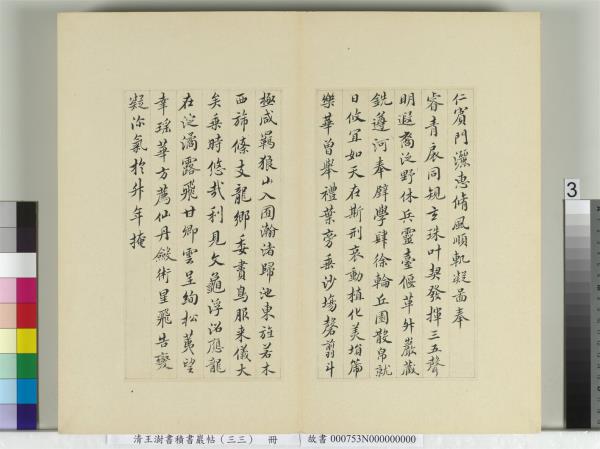 仁賓門灑惠脩風順軌凝啚奉
睿青扆同規玄珠叶契發揮三五聲
明遐裔泛野休兵靈臺偃革舛巖藏
銑遵河奉璧學肆徐輪丘園散帛就
日攸宜如天在斯刑哀動植化美塤篪
樂華曾舉禮葉旁垂沙場罄翦斗
極咸羈狼山入囿瀚渚歸池東旌若木
西旆條支龍鄉委賮鳥服來儀大
矣乘時悠哉利見文龜浮沼應龍
在淀潏露飛甘卿雲呈絢松蕘望
幸瑤華方薦仙丹斂術星飛告變
凝沵氣於升年掩
清王澍書積書巖帖（三三） 冊
故書 000753N000000000
3